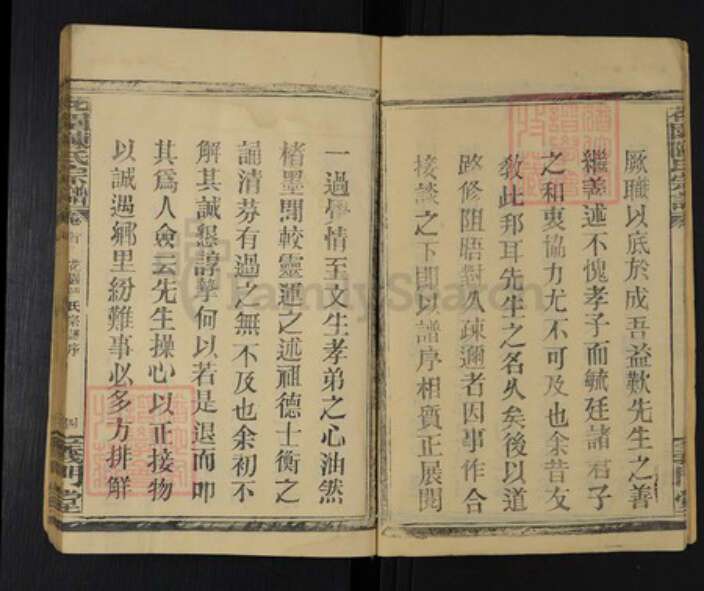 厥職以底於成吾益歎先生之善
繼善述不愧孝子而毓廷諸君子
之和衷協力尤不可及也余昔友
教此邦耳先生之名久矣後以道
路修阻晤對久疎邇者因事作合
接談之下即以譜序相質正展閱
一過覺情至文生孝弟之心油然
楮墨間較靈運之述祖德士衡之
誦清芬有過之無不及也余初不
解其誠懇諄摯何以若是退而叩
其為人僉云先生操心以正接物
以誠遇鄉里紛難事必多方排解
花園陳氏宗譜
卷首
花園陳氏宗譜序
四
義門堂
FamilySearch